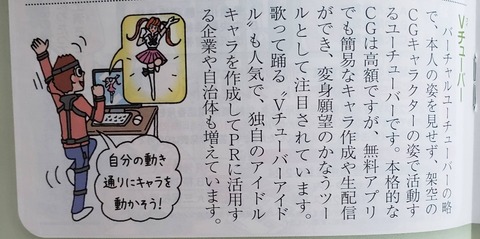 Vチューバー
バーチャルユーチューバーの略
で、本人の姿を見せず、架空の
CGキャラクターの姿で活動す
るユーチューバーです。本格的な
CGは高額ですが、無料アプリ
でも簡易なキャラ作成や生配信
ができ、変身願望のかなうツー
ルとして注目されています。
歌って踊る〝Vチューバーアイド
ル〟も人気で、独自のアイドル
キャラを作成してPRに活用す
る企業や自治体も増えています。
自分の動き
通りにキャラを
動かそう!